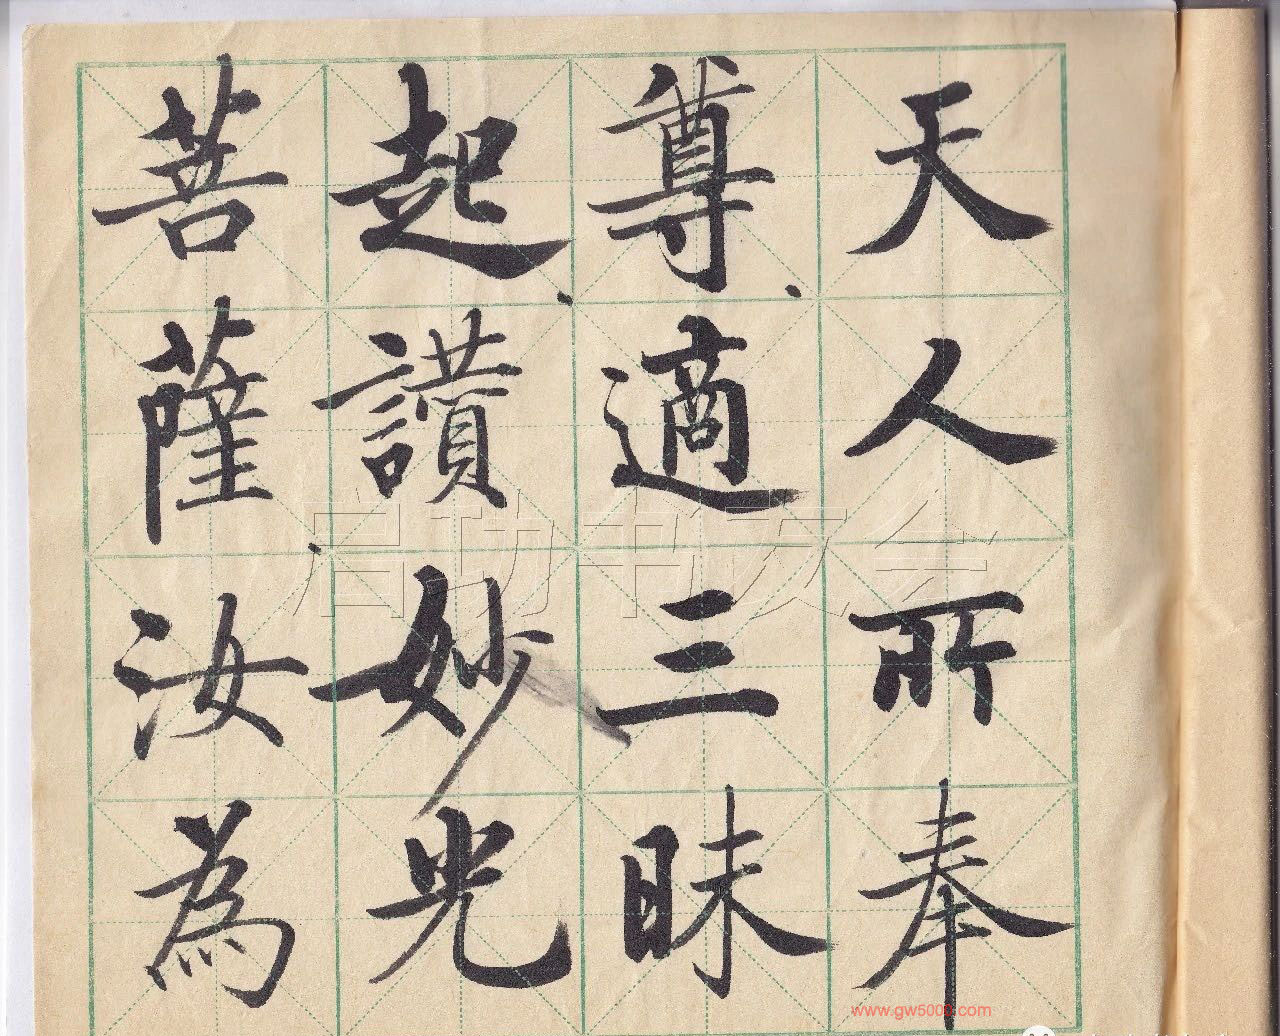 天人所奉
尊適三昧
起讃妙光
菩薩汝為
启功书友会
www.gw5000.com